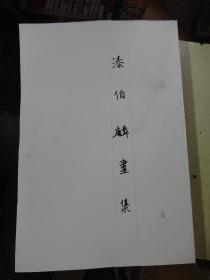 漆伯麟畫集